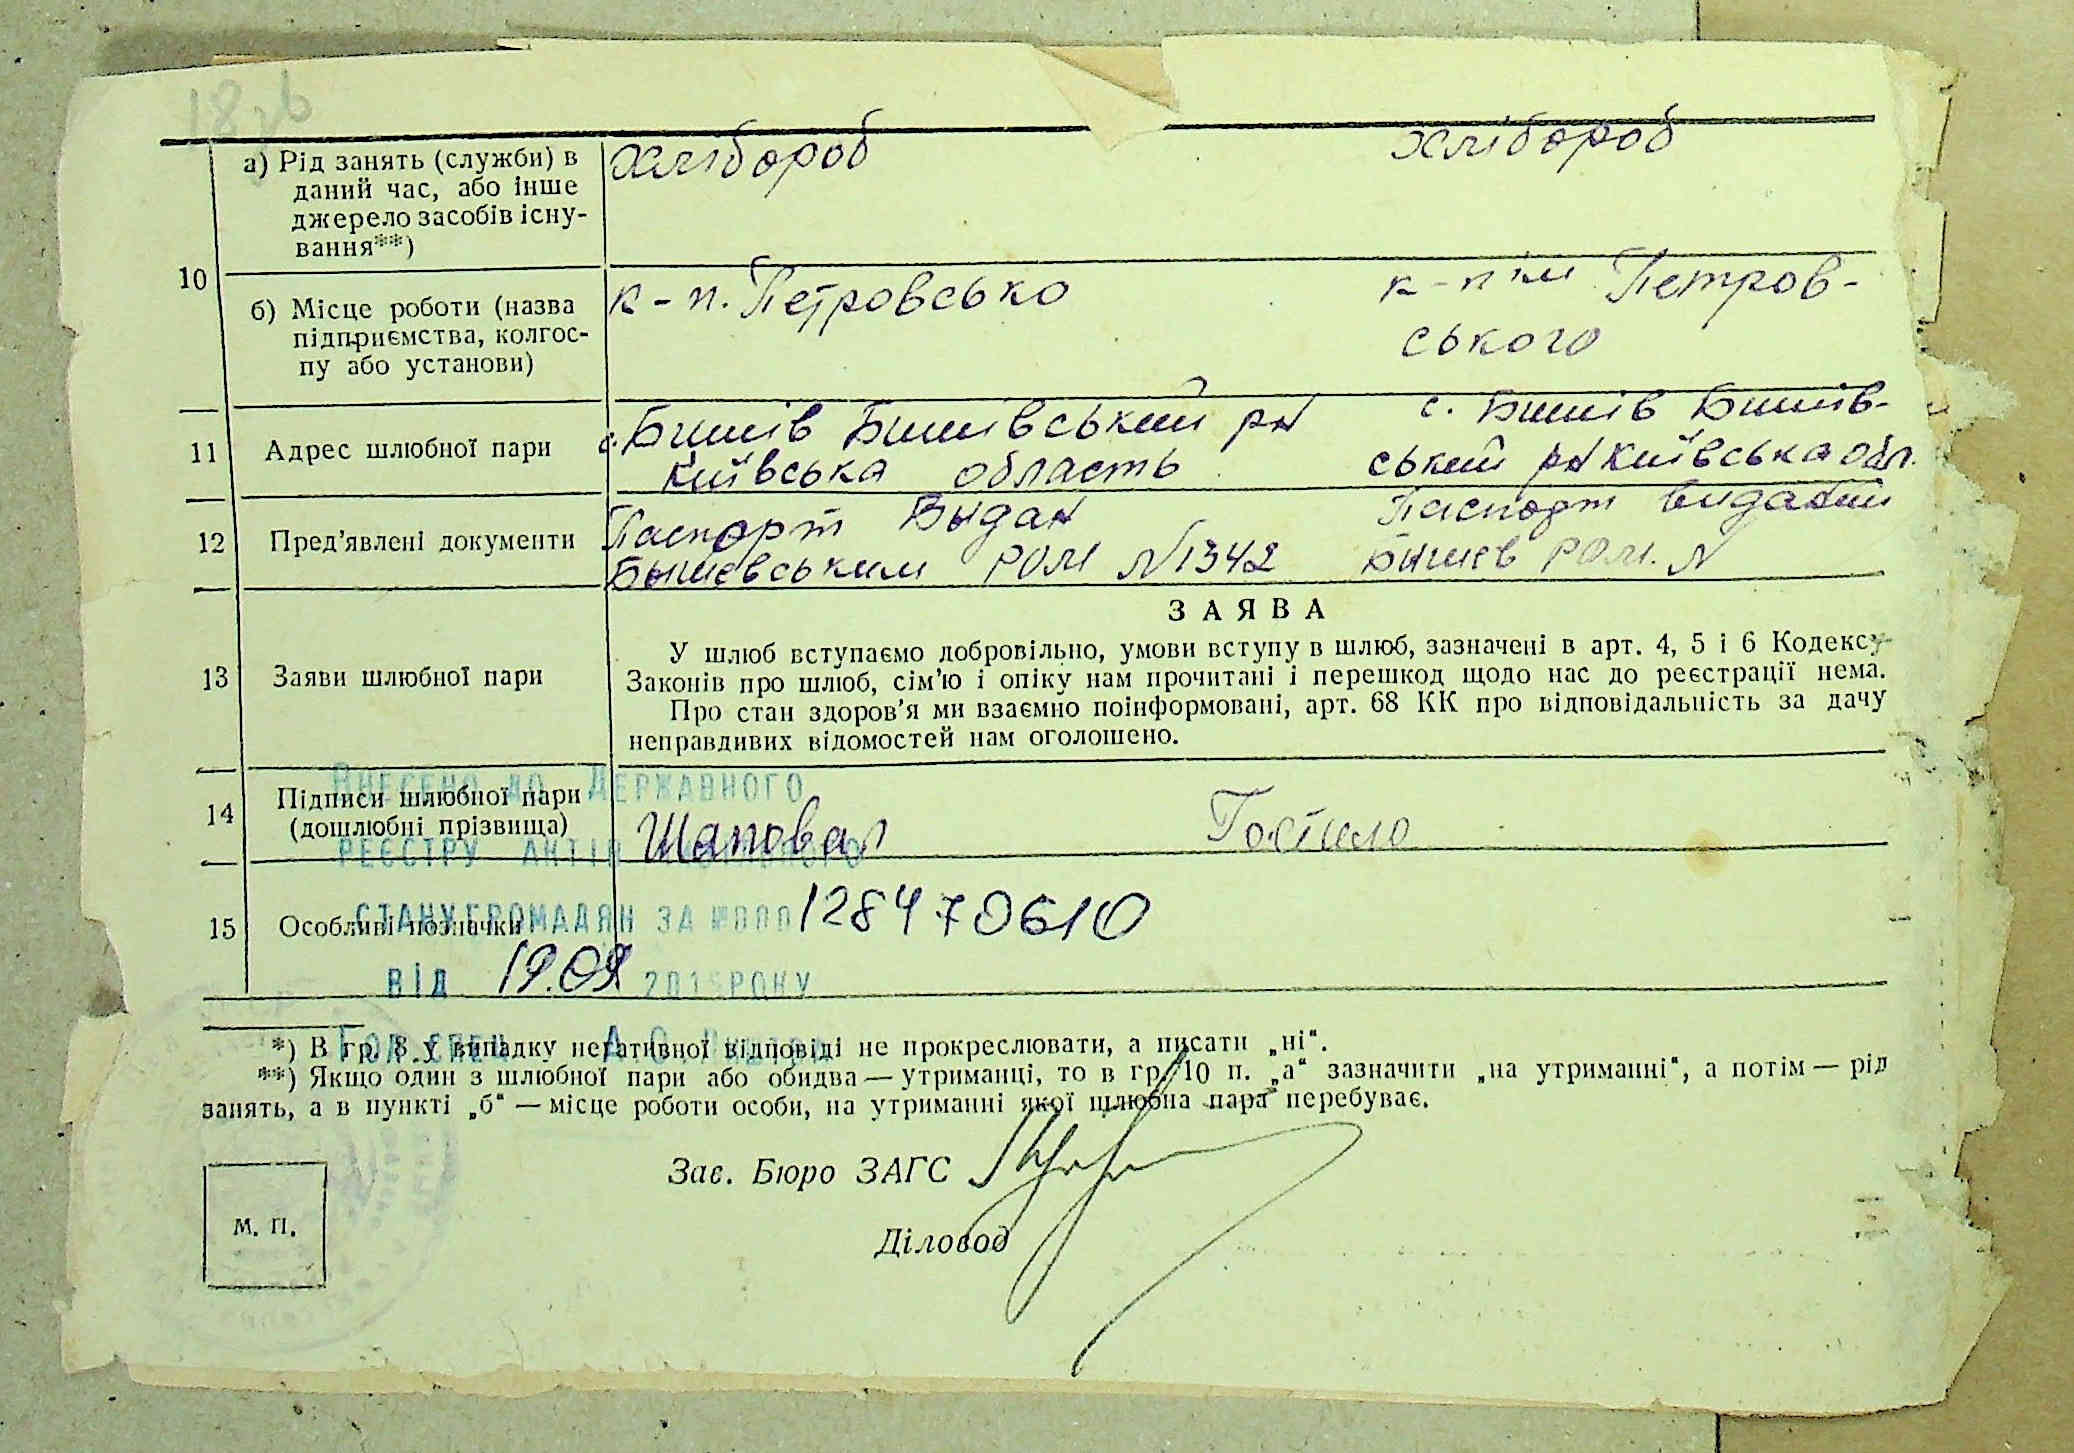 18зв
10
а) Рід занять (служби) в
даний час, або інше
джерело засобів існу-
вання**)
Хлібороб
Хлібороб
б) Місце роботи (назва
підприємства, колгос-
пу або установи)
к-п. Петровсько
к-п ім Петров-
ського
11
Адрес шлюбної пари
с. Бишів Бишівський рн
Київська область
с. Бишів Бишів-
ський рн Київська обл.
12
Пред’явлені документи
Паспорт Выдан
Бышевським РОМ №1342
Паспорт видании
Бышев РОМ. №
13
Заяви шлюбної пари
ЗАЯВА
У шлюб вступаємо добровільно, умови вступу в шлюб, зазначені в арт. 4, 5 і 6 Кодексу
Законів про шлюб, сім’ю і опіку нам прочитані і перешкод щодо нас до реєстрації нема.
Про стан здоров’я ми взаємно поінформовані, арт. 68 КК про відповідальність за дачу
неправдивих відомостей нам оголошено.
14
Підписи шлюбної пари
(дошлюбні прізвища)
Шаповал
Гостило
15
Особливі позначки
Внесено до Державного
реєстру актів
стану громадян за №000 128470610
від 19.09 2015 року
*) В гр. 8 у випадку негативної відповіді не прокреслювати, а писати „ні“.
**) Якщо один з шлюбної пари або обидва — утриманці, то в гр. 10 п. „а“ зазначити „на утриманні“, а потім — рід
занять, а в пункті „б“ — місце роботи особи, на утриманні якої шлюбна пара перебуває.
Зав. Бюро ЗАГС
Діловод
М. П.